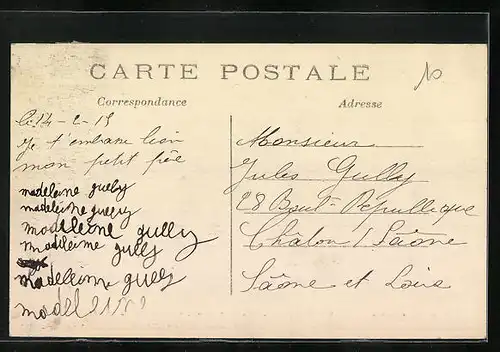 CARTE POSTALE
Correspondance
Adresse
Le 14-2-15
Je t'embrasse bien
mon petit père
madeleine gully
madeleine gully
madeleine gully
madeleine gully
madeleine gully
madel
Monsieur
Jules Gully
28 Bout République
Châlon / Saône
Saône et Loire